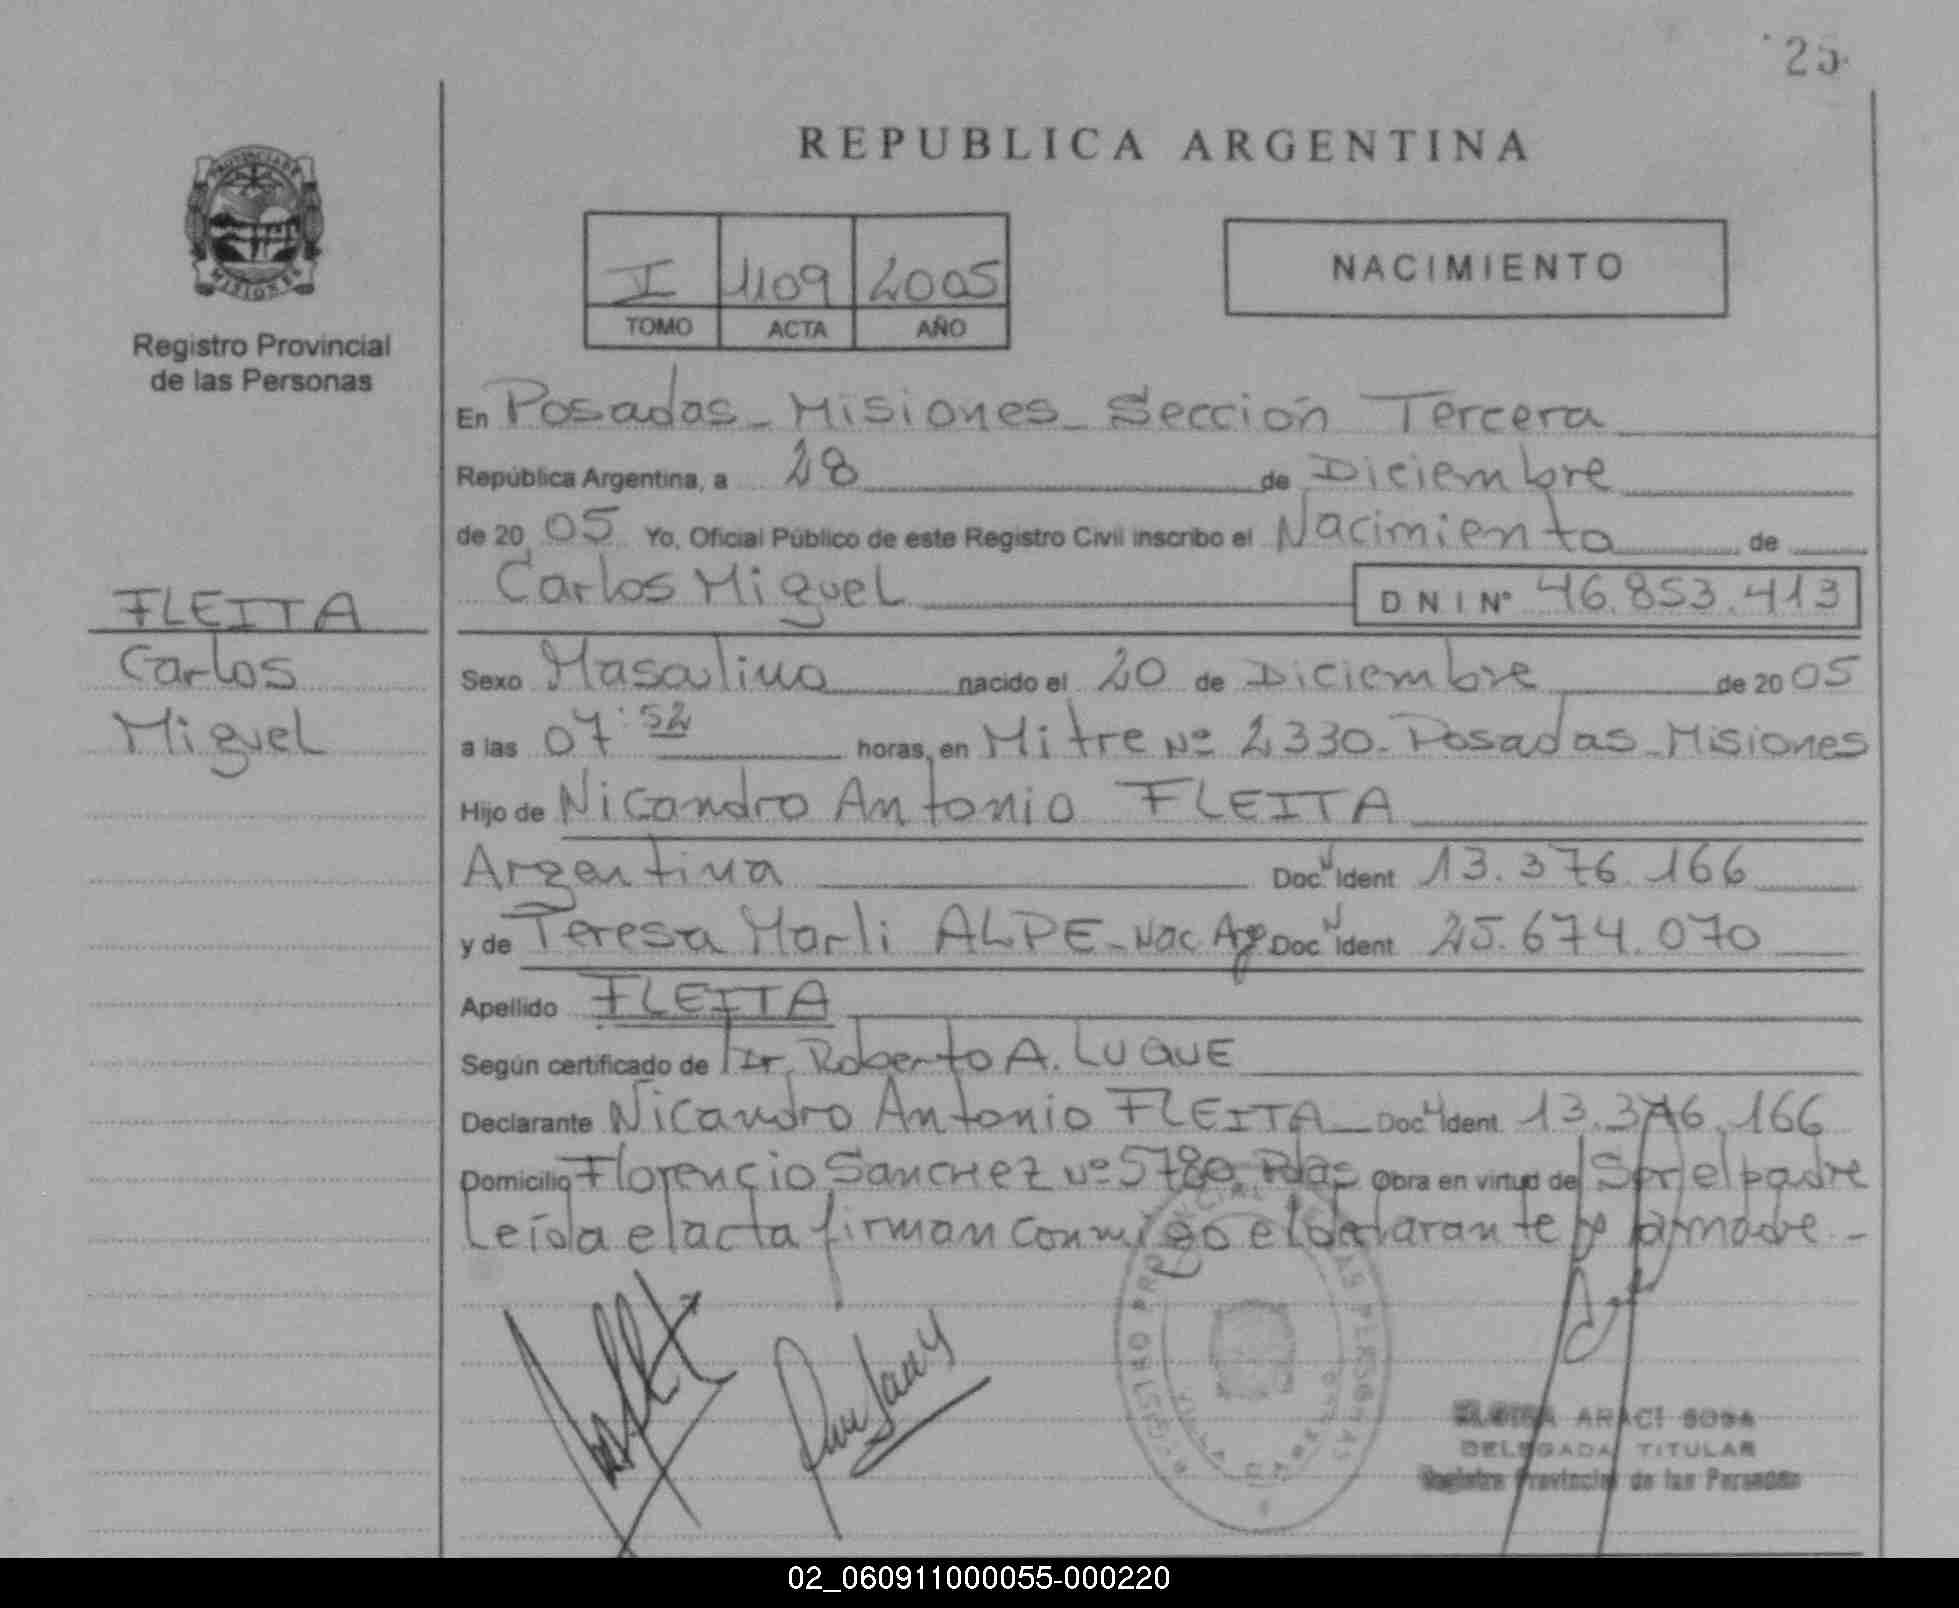 25.
PROVINCIA DE
MISIONES
REPUBLICA ARGENTINA
I 1109 2005
TOMO ACTA AÑO
NACIMIENTO
Registro Provincial
de las Personas
En Posadas - Misiones - Sección Tercera
República Argentina, a 28 de Diciembre
de 20 05 Yo, Oficial Público de este Registro Civil inscribo el Nacimiento de
Carlos Miguel D N I Nº 46.853.413
FLEITA
Carlos
Miguel
Sexo Masculino nacido el 20 de Diciembre de 20 05
a las 07:52 horas, en Mitre Nº 2330 - Posadas - Misiones
Hijo de Nicandro Antonio FLEITA
Argentina Doc. Ident 13.376.166
y de Teresa Marli ALPE - Nac. Arg Doc. Ident 25.674.070
Apellido FLEITA
Según certificado de Dr. Roberto A. LUQUE
Declarante Nicandro Antonio FLEITA - Doc. Ident 13.376.166
Domicilio Florencio Sanchez nº 5780 Pdas Obra en virtud de Ser el padre
Leída el acta firman conmigo el declarante y la madre -
REGISTRO PROVINCIAL DE LAS PERSONAS
ARACI SOSA
DELEGADA TITULAR
Registro Provincial de las Personas
02_060911000055-000220